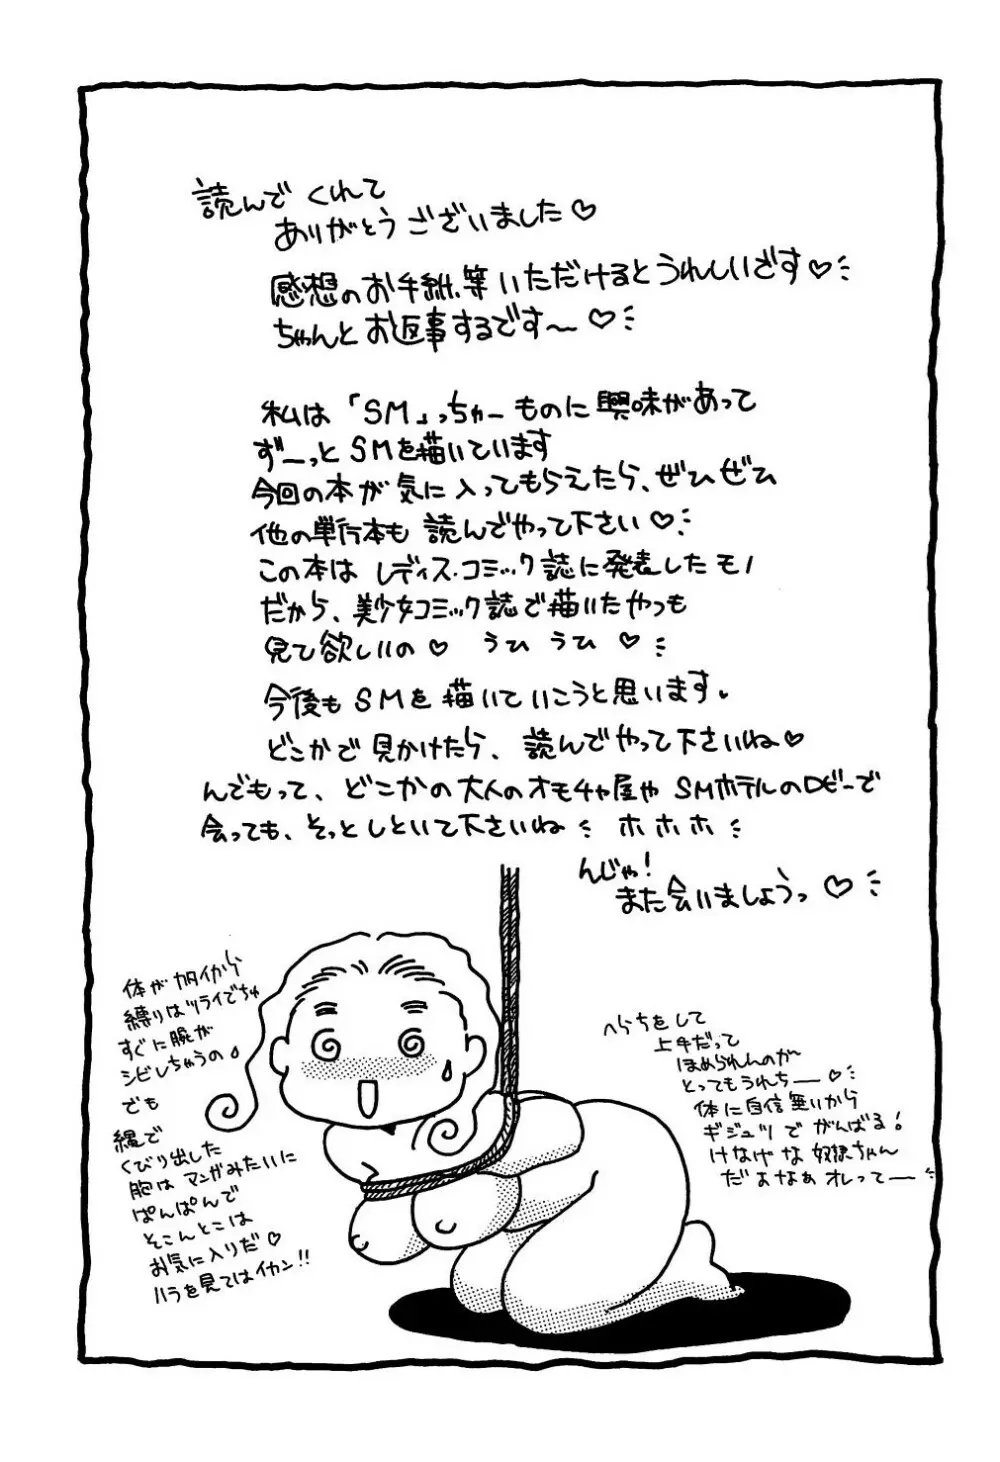 読んでくれて
ありがとうございました♡
感想のお手紙、等いただけるとうれしいざす♡
ちゃんとお返事するです〜♡
私は「SM」っちゃーものに興味があって
ずーっとSMを描いています
今回の本が気に入ってもらえたら、ぜひぜひ
他の単行本も読んでやって下さい♡
この本はレディス・コミック誌に発表したモノ
だから、美少女コミック誌で描いたやつも
見て欲しいの♡ うひうひ♡
今後もSMを描いていこうと思います。
どこかで見かけたら、読んでやって下さいね♡
んでもって、どこかの大人のオモチャ屋やSMホテルのロビーで
会っても、そっとしといて下さいね ホホホ
んじゃ!
また会いましょうっ♡
体がカタイから
縛りはツライでちゅ
すぐに腕が
シビレちゃうの。
でも
縄で
くびり出した
胸はマンガみたいに
ぱんぱんで
そこんとこは
お気に入りだ♡
ハラを見てはイカン!!
へらちをして
上手だって
ほめられんのが〜
とってもうれちー♡
体に自信無いから
ギジュツでがんばる!
けなげな奴隷ちゃん
だよなぁオレってー